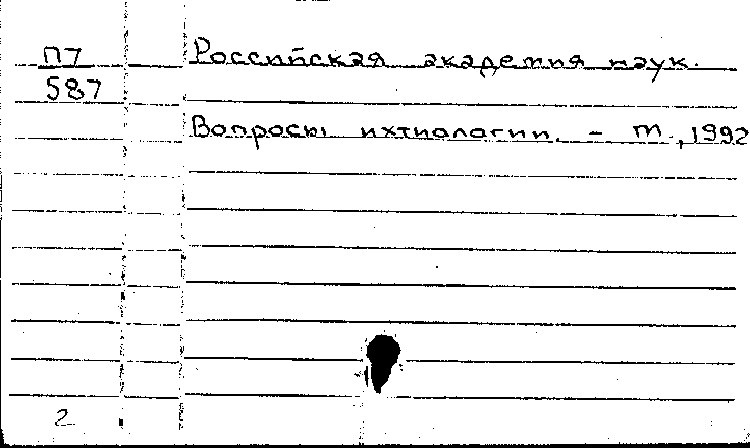 П7 Российская академия наук.
587
Вопросы ихтиологии. - М., 1992
2